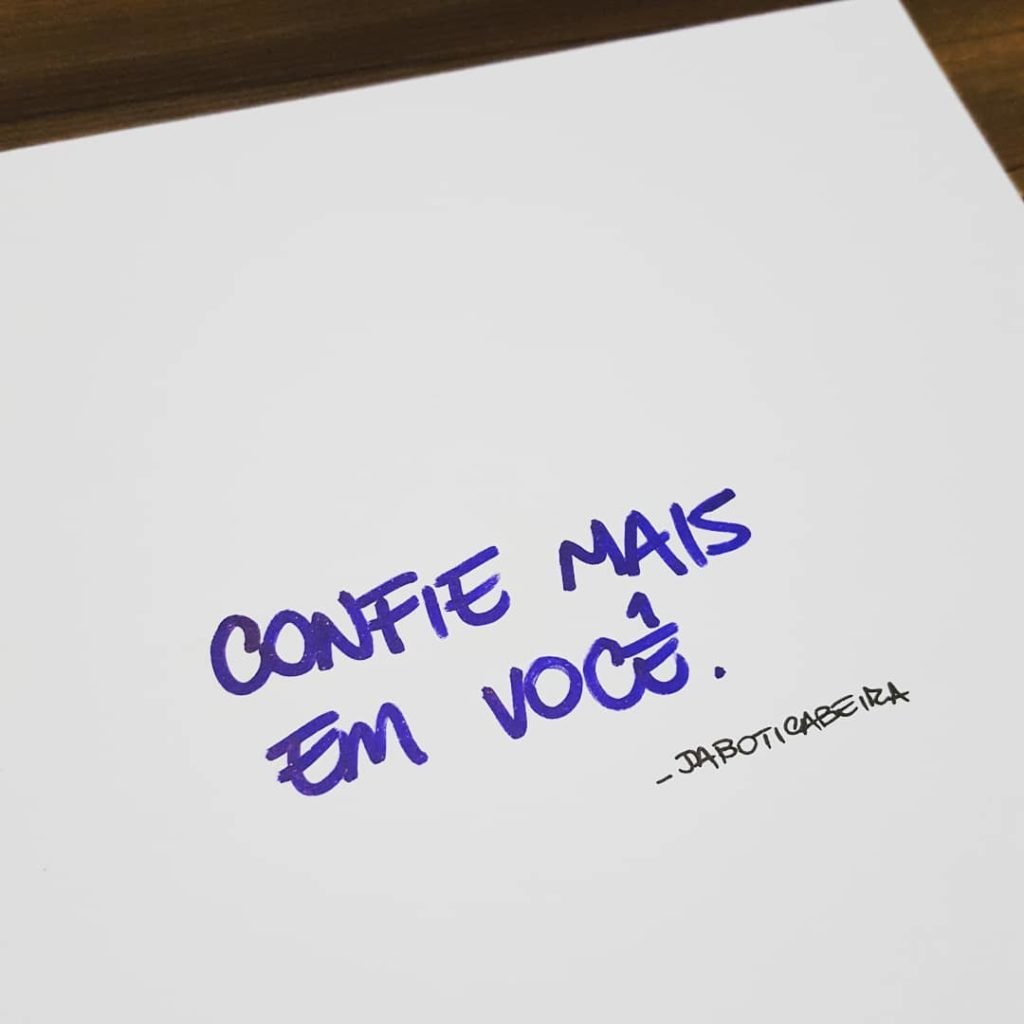 CONFIE MAIS
EM VOCÊ.
_JABOTICABEIRA